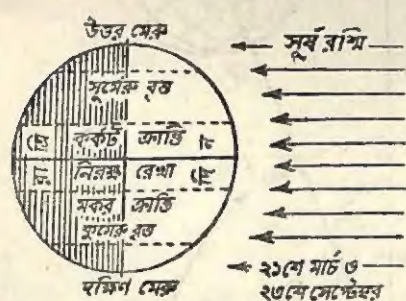 উত্তর মেরু
সূর্য রশ্মি
সুমেরু বৃত্ত
রাত্রি
কর্কট ক্রান্তি
দিন
নিরক্ষ রেখা
মকর ক্রান্তি
কুমেরু বৃত্ত
দক্ষিণ মেরু
২১শে মার্চ ও
২৩শে সেপ্টেম্বর